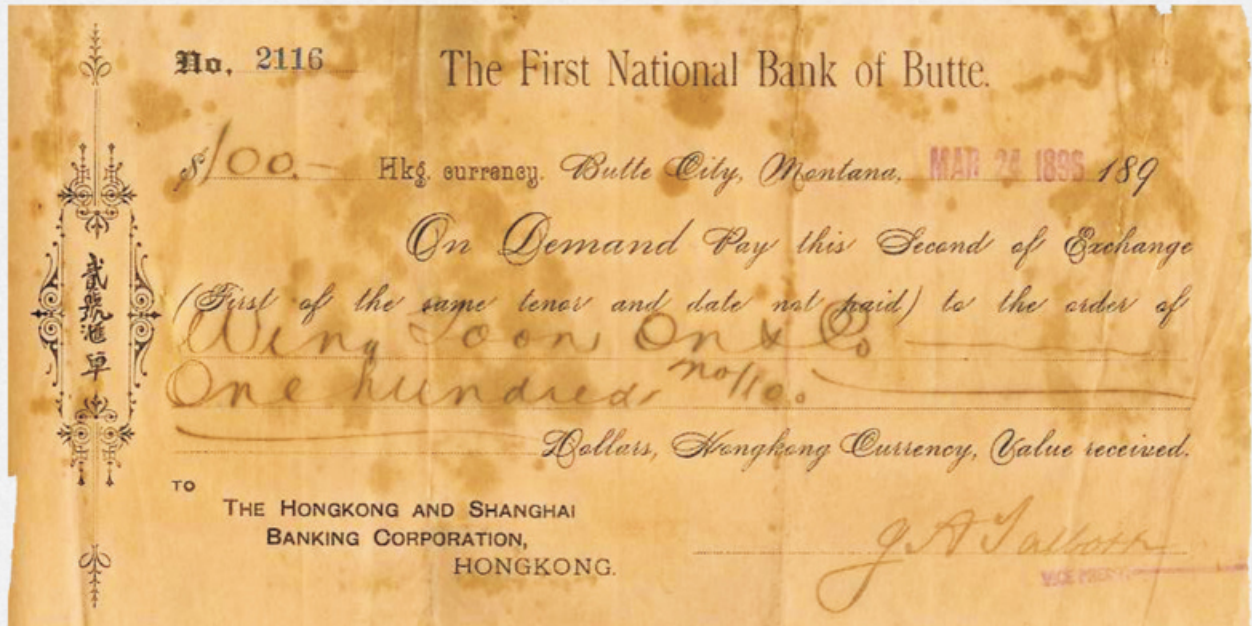 No. 2116
The First National Bank of Butte.
$100.— Hkg. currency. Butte City, Montana, MAR 24 1896 189
On Demand Pay this Second of Exchange
(First of the same tenor and date not paid) to the order of
Wing Toon On & Co
One hundred no/10.
Dollars, Hongkong Currency, Value received.
TO
THE HONGKONG AND SHANGHAI
BANKING CORPORATION,
HONGKONG.
J A Talbott
VICE PREST.
貳號滙單